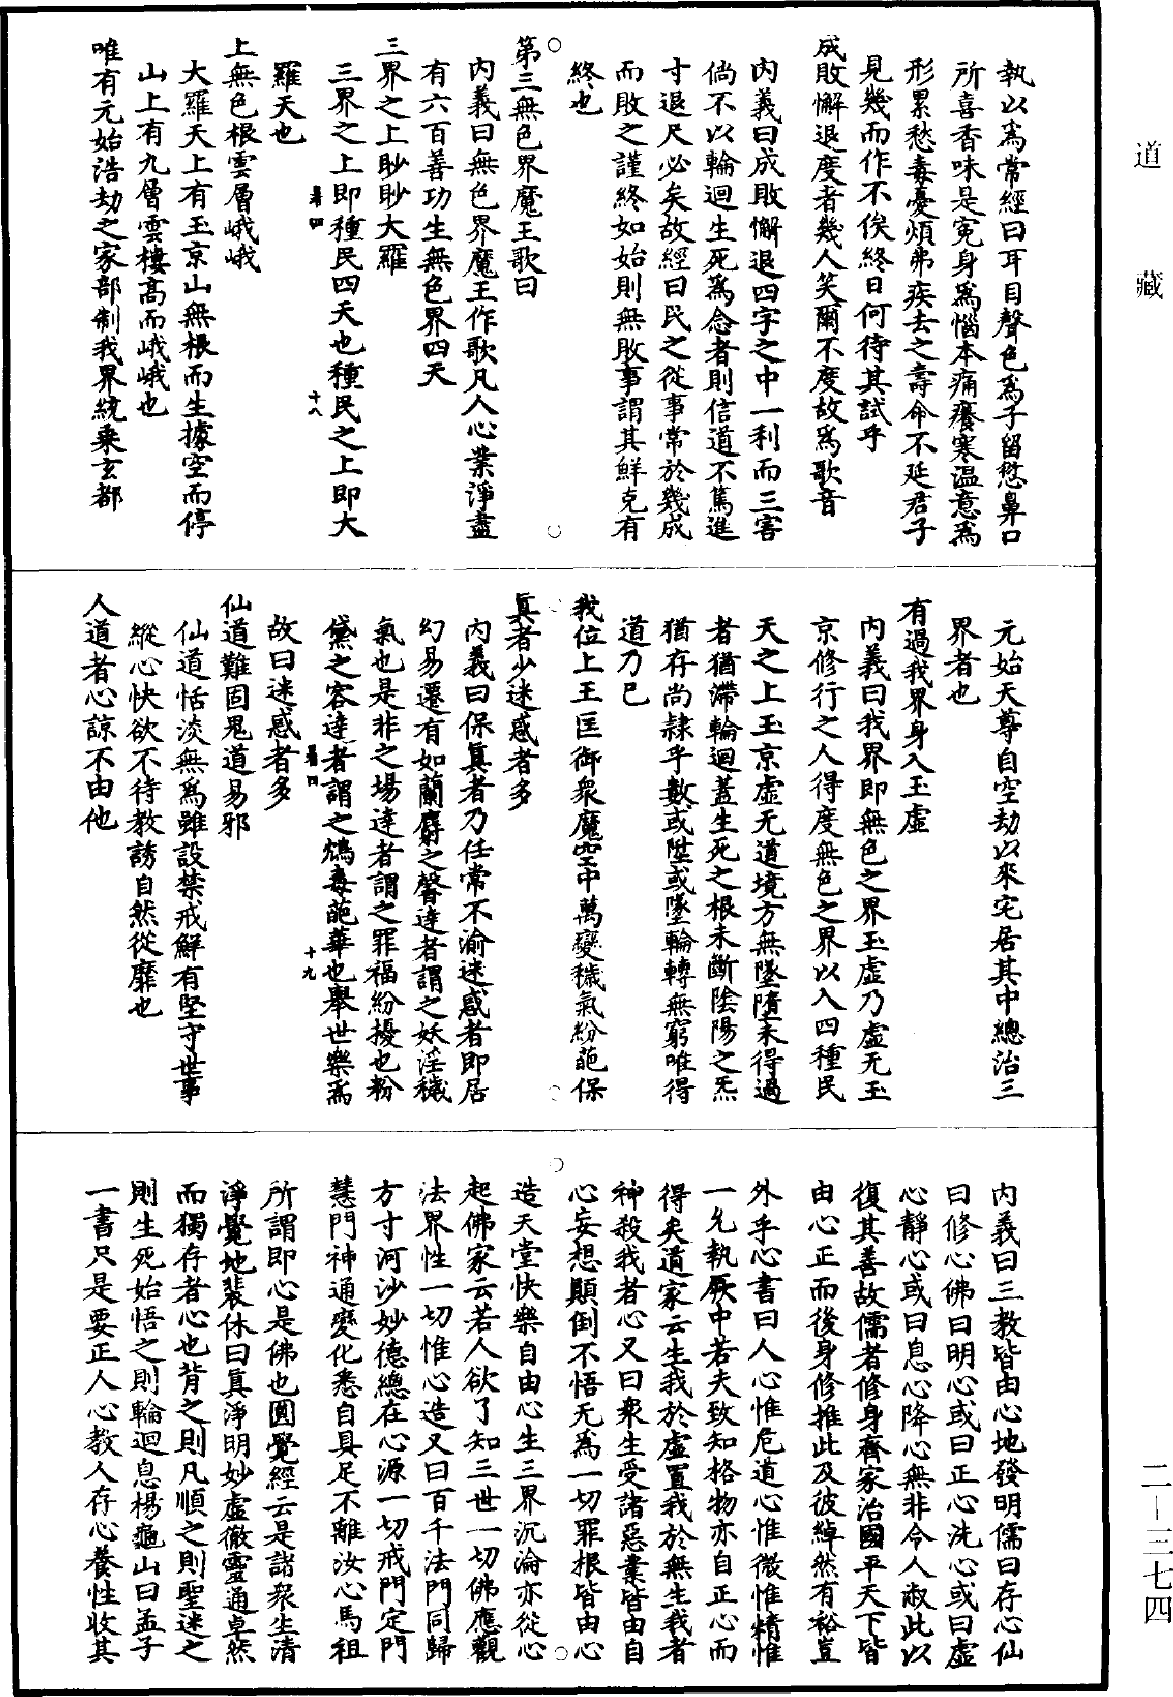 道藏
二-三七四
執以爲常經曰耳目聲色爲子留愆鼻口
所喜香味是寃身爲惱本痛癢寒溫意爲
形累愁毒憂煩弗疾去之壽命不延君子
見幾而作不俟終日何待其試乎
成敗懈退度者幾人笑爾不度故爲歌音
內義曰成敗懈退四字之中一利而三害
倘不以輪迴生死爲念者則信道不篤進
寸退尺必矣故經曰民之從事常於幾成
而敗之謹終如始則無敗事謂其鮮克有
終也
第三無色界魔王歌曰
內義曰無色界魔王作歌凡人心業淨盡
有六百善功生無色界四天
三界之上眇眇大羅
三界之上即種民四天也種民之上即大
羅天也
上無色根雲層峨峨
大羅天上有玉京山無根而生據空而停
山上有九層雲樓高而峨峨也
唯有元始浩劫之家部制我界統乗玄都
元始天尊自空劫以來宅居其中總治三
界者也
有過我界身入玉虛
內義曰我界即無色之界玉虛乃虛无玉
京修行之人得度無色之界以入四種民
天之上玉京虛无道境方無墜墮未得過
者猶滯輪迴蓋生死之根未斷陰陽之炁
猶存尚隷乎數或陞或墜輪轉無窮唯得
道乃已
我位上王匡御衆魔空中萬變穢氣紛葩保
真者少迷惑者多
內義曰保真者乃任常不渝迷惑者即居
幻易遷有如蘭麝之馨達者謂之妖淫穢
氣也是非之場達者謂之罪福紛擾也粉
黛之容達者謂之鴆毒葩華也舉世樂爲
故曰迷惑者多
仙道難固鬼道易邪
仙道恬淡無爲雖設禁戒鮮有堅守世事
縱心快欲不待教誘自然從靡也
人道者心諒不由他
內義曰三教皆由心地發明儒曰存心仙
曰修心佛曰明心或曰正心洗心或曰虛
心靜心或曰息心降心無非令人淑此以
復其善故儒者修身齊家治國平天下皆
由心正而後身修推此及彼綽然有裕豈
外乎心書曰人心惟危道心惟微惟精惟
一允執厥中若夫致知格物亦自正心而
得矣道家云生我於虛置我於無生我者
神殺我者心又曰衆生受諸惡業皆由自
心妄想顚倒不悟无為一切罪根皆由心
造天堂快樂自由心生三界沉淪亦從心
起佛家云若人欲了知三世一切佛應觀
法界性一切惟心造又曰百千法門同歸
方寸河沙妙德總在心源一切戒門定門
慧門神通變化悉自具足不離汝心馬祖
所謂即心是佛也圓覺經云是諸衆生清
淨覺地裴休曰真淨明妙虛徹靈通卓然
而獨存者心也背之則凡順之則聖迷之
則生死始悟之則輪迴息楊龜山曰孟子
一書只是要正人心教人存心養性收其